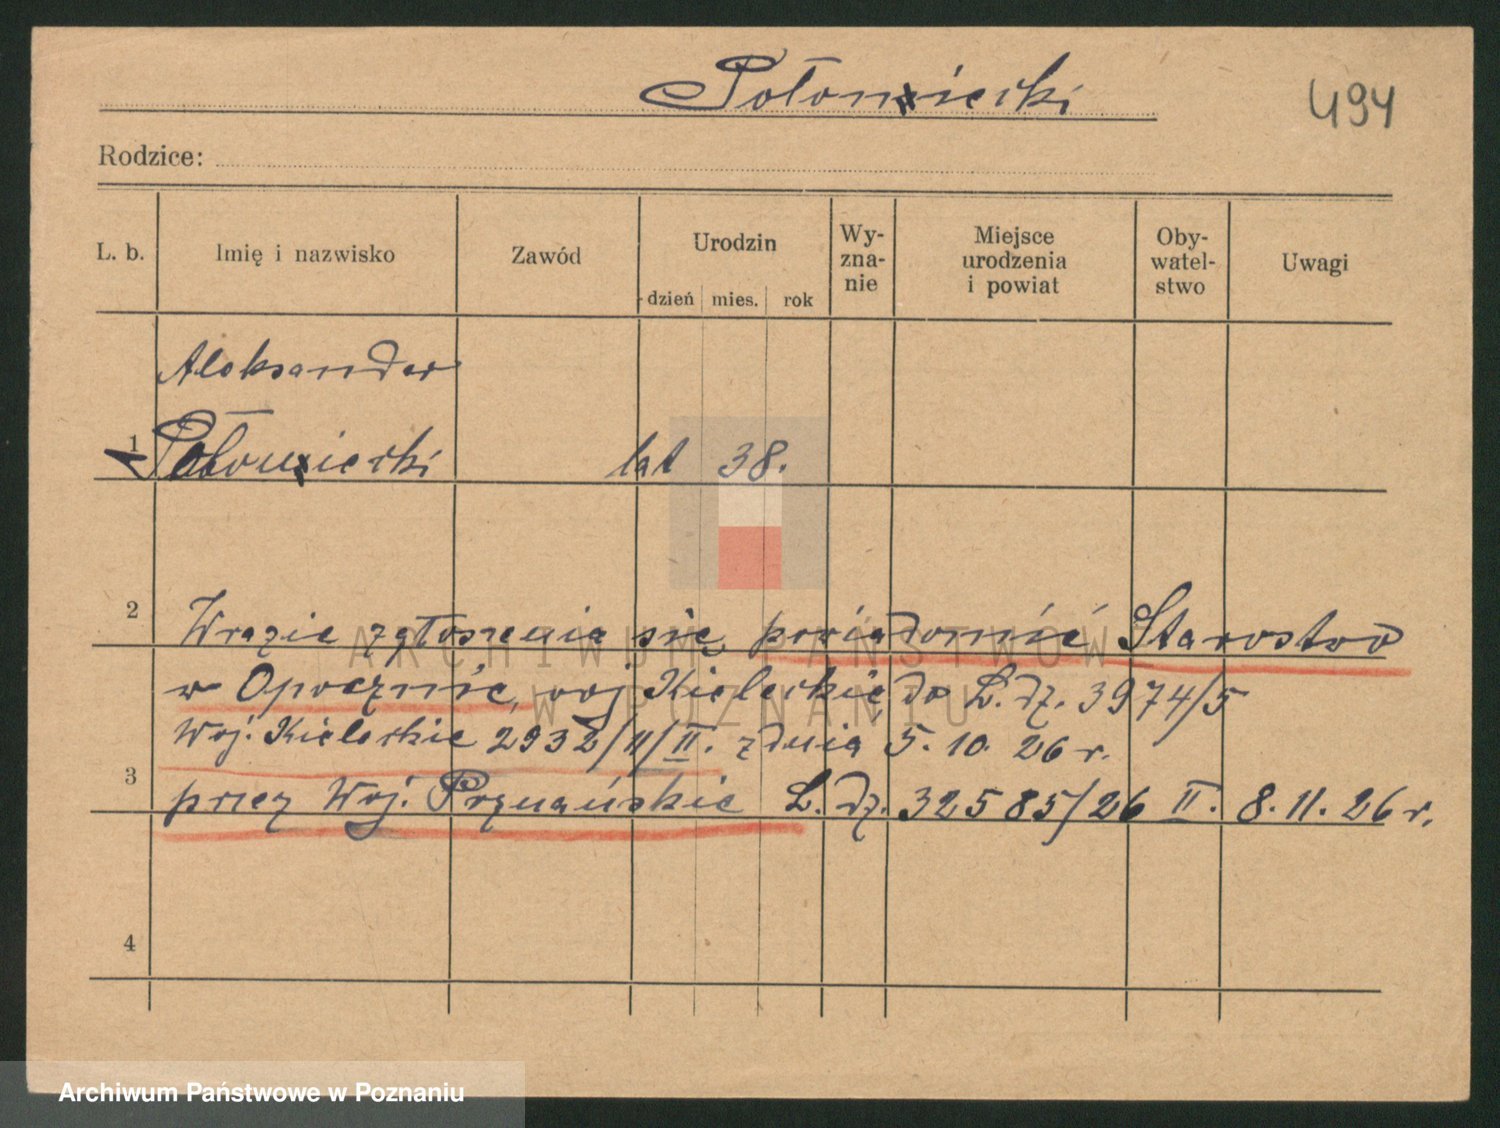 Połoniecki
494
Rodzice:
L. b. Imię i nazwisko Zawód Urodzin dzień mies. rok Wy-zna-nie Miejsce urodzenia i powiat Oby-watel-stwo Uwagi
Aleksander
1 Połoniecki lat 38.
2 Wrazie zgłoszenia się powiadomić Starostwo
w Opocznie, woj Kieleckie do L. dz. 3974/5
Woj. Kieleckie 2932/II/II. z dnia 5. 10. 26 r.
3 przez Woj. Poznańskie L. dz. 32585/26 II. 8. 11. 26 r.
4
ARCHIWUM PAŃSTWOWE
W POZNANIU
Archiwum Państwowe w Poznaniu